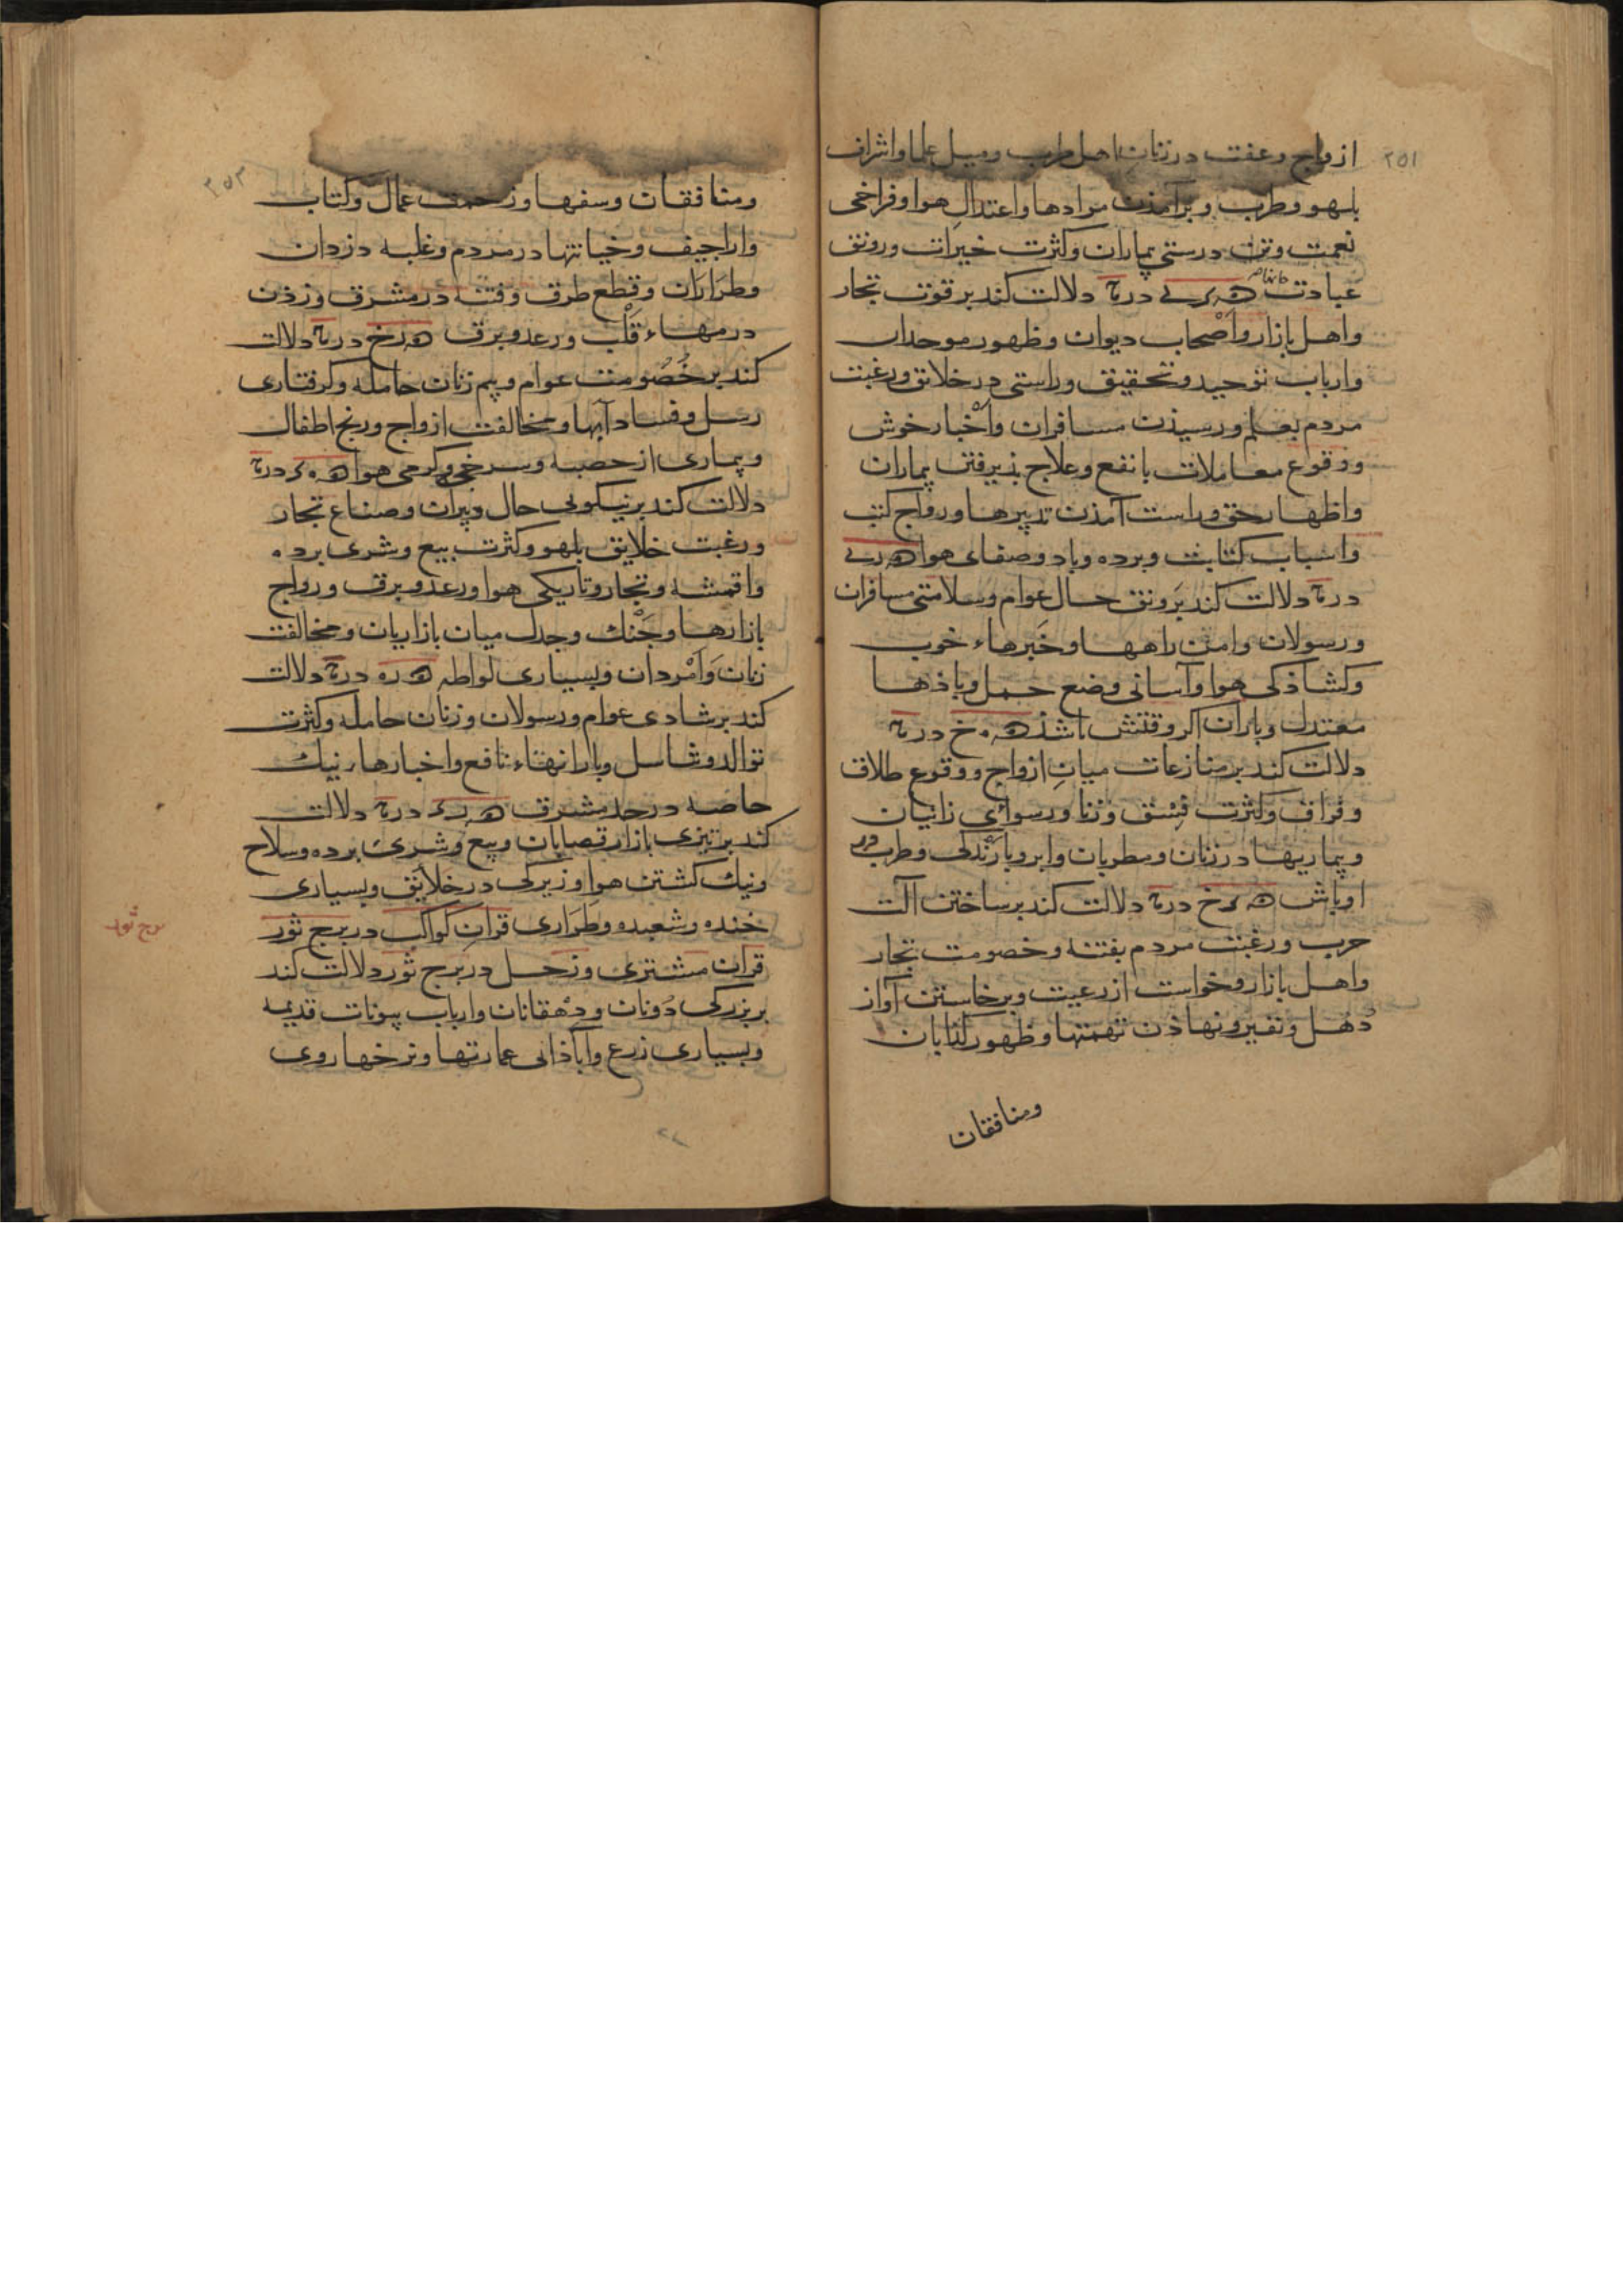 ٢٥١
ازواج و عفت در زنان اهل طرب و میل علما و اشراف
بلهو و طرب و برآمذن مرادها و اعتدال هوا و فراخی
نعمت و تن درستی بیماران و کثرت خیرات و رونق
عبادت دلالت کند بر قوت تجار
واهل بازار و اصحاب دیوان و ظهور موحدان
وارباب توحید و تحقیق و راستی در خلائق و رغبت
مردم بعلم و رسیذن مسافران و اخبار خوش
و وقوع معاملات با نفع و علاج پذیرفتن بیماران
واظهار حق و راست آمذن تدبیرها و رواج کتب
واسباب کتابت و برده و باد و صفای هوا
دلالت کند بر رونق حال عوام و سلامتی مسافران
و رسولان وامن راهها و خبرهاء خوب
و کشاذکی هوا و آسانی وضع حمل و باذها
معتدل و باران اکر وقتش باشذ
دلالت کند بر منازعات میان ازواج و وقوع طلاق
و فراق و کثرت فسق و زنا و رسوائی زانیان
و بیماریها در زنان و مطربان و ابر و بارندکی و طرب در
اوباش دلالت کند بر ساختن آلت
حرب و رغبت مردم بفتنه و خصومت تجار
واهل بازار و خواست از رعیت و برخاستن آواز
دهل و نفیر و نهاذن تهمتها و ظهور کذابان
ومنافقان
٢٥٢
ومنافقان وسفها و زحمت عمال و کتاب
واراجیف و خیانتها در مردم و غلبه دزدان
وطراران و قطع طرق و فتنه در مشرق و زذن
درمهاء قلب و رعد و برق دلالت
کند بر خصومت عوام و بیم زنان حامله و کرفتاری
رسل و فساد آبها و مخالفت ازواج و رنج اطفال
و بیماری از حصبه و سرخی و کرمی هوا
دلالت کند بر نیکویی حال و پیران و صناع تجار
و رغبت خلایق بلهو و کثرت بیع و شری برده
واقمشه و تجار و تاریکی هوا و رعد و برق و رواج
بازارها و جنک و جدل میان بازاریان و مخالفت
زنان و امردان و بسیاری لواطه دلالت
کند بر شادی عوام و رسولان و زنان حامله و کثرت
توالد و تناسل و بارانهاء نافع و اخبارهاء نیک
خاصه در حد مشرق دلالت
کند بر تیزی بازار قصابان و بیع و شری برده و سلاح
و نیک کشتن هوا و زیرکی در خلایق و بسیاری
خنده و شعبده و طراری قران کواکب در برج ثور
برج ثور
قران مشتری و زحل در برج ثور دلالت کند
بر بزرکی دونان و دهقانان و ارباب بیوتات قدیمه
و بسیاری زرع و آباذانی عمارتها و نرخها روی